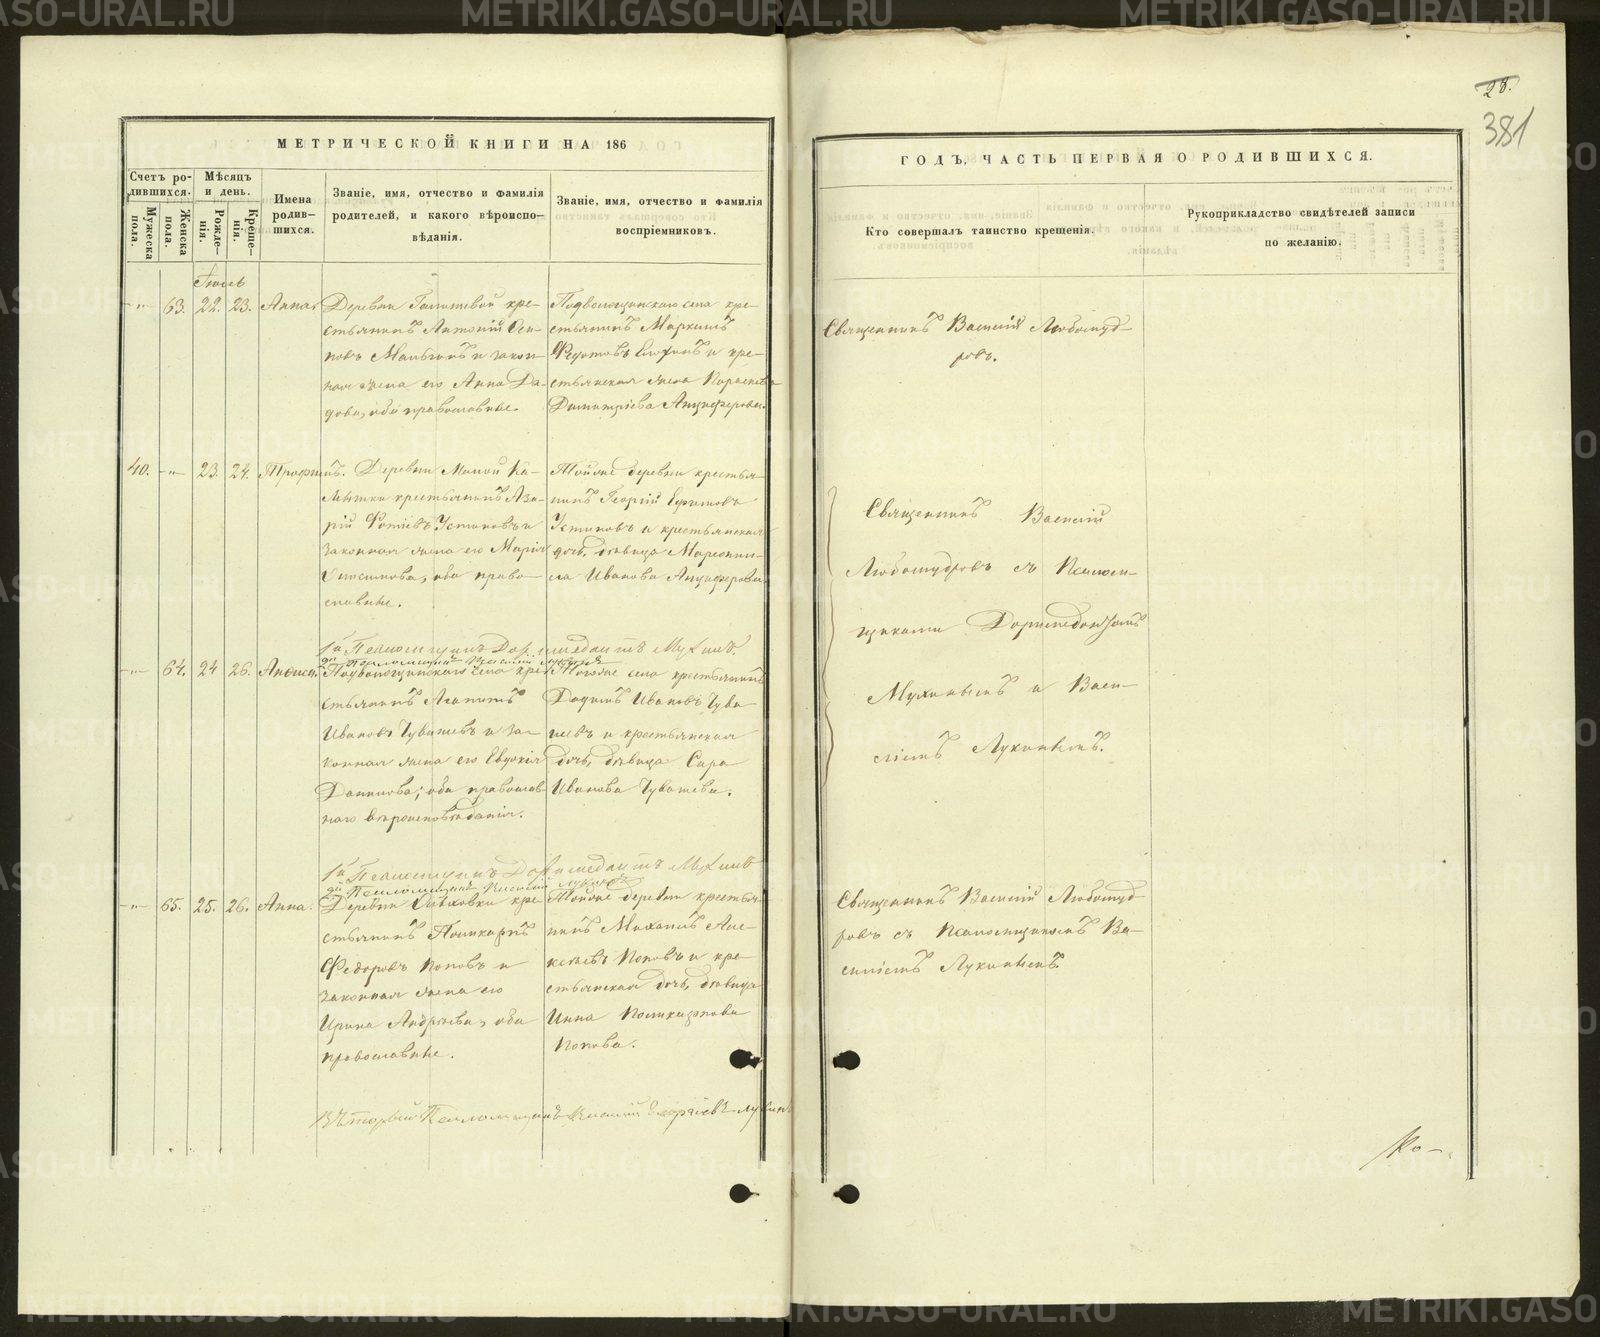 28.
381
МЕТРИЧЕСКОЙ КНИГИ НА 186
ГОДЪ, ЧАСТЬ ПЕРВАЯ О РОДИВШИХСЯ.
Счетъ ро-
дившихся.
Мужеска
пола.
Женска
пола.
Мѣсяцъ
и день.
Рожде-
нія.
Креще-
нія.
Имена
родив-
шихся.
Званіе, имя, отчество и фамилія
родителей, и какого вѣроиспо-
вѣданія.
Званіе, имя, отчество и фамилія
воспріемниковъ.
Кто совершалъ таинство крещенія.
Рукоприкладство свидѣтелей записи
по желанію.
Іюль
-"- 63. 22. 23. Анна.
Деревни кре-
стьянинъ Антоній Оси-
повъ и закон-
ная жена его Анна Да-
дова, оба православные.
Подволощинскаго села кре-
стьянинъ
Федотовъ и кре-
стьянская жена Параскева
Димитріева Анциферова.
Священникъ Василій Любомуд-
ровъ.
40. -"- 23. 24. Трофимъ.
Деревни Малой Ка-
мышки крестьянинъ Аза-
рій Фотіевъ Устиновъ и
законная жена его Марія
оба право-
славные.
Тойже деревни крестья-
нинъ Георгій Ефимовъ
Устиновъ и крестьянская
дочь, дѣвица
Иванова Анциферова.
Священникъ Василій
Любомудровъ съ Псалом-
щиками Доримедонтомъ
Мухинымъ и Васи-
ліемъ Лукинымъ.
1й Псаломщикъ Доримедонтъ Мухинъ
2й Псаломщикъ Василій Лукинъ
-"- 64. 24 26. Анфиса.
Подволощинскаго села кре-
стьянинъ Агапитъ
Ивановъ Чувашевъ и за-
конная жена его Евдокія
Данилова; оба православ-
наго вѣроисповѣданія.
Тогоже села крестьянинъ
Ивановъ Чува-
шевъ и крестьянская
дочь, дѣвица Сара
Иванова Чувашева.
1й Псаломщикъ Доримедонтъ Мухинъ
2й Псаломщикъ Василій Лукинъ
-"- 65. 25. 26. Анна.
Деревни кре-
стьянинъ Поликарпъ
Федоровъ Поповъ и
законная жена его
Ирина Андреева, оба
православные.
Тойже деревни крестья-
нинъ Михаилъ Але-
ксѣевъ Поповъ и кре-
стьянская дочь, дѣвица
Инна Поликарпова
Попова.
Священникъ Василій Любомуд-
ровъ съ Псаломщикомъ Ва-
силіемъ Лукинымъ.
Вторый Псаломщикъ Василій Лукинъ
Ко-
METRIKI.GASO-URAL.RU